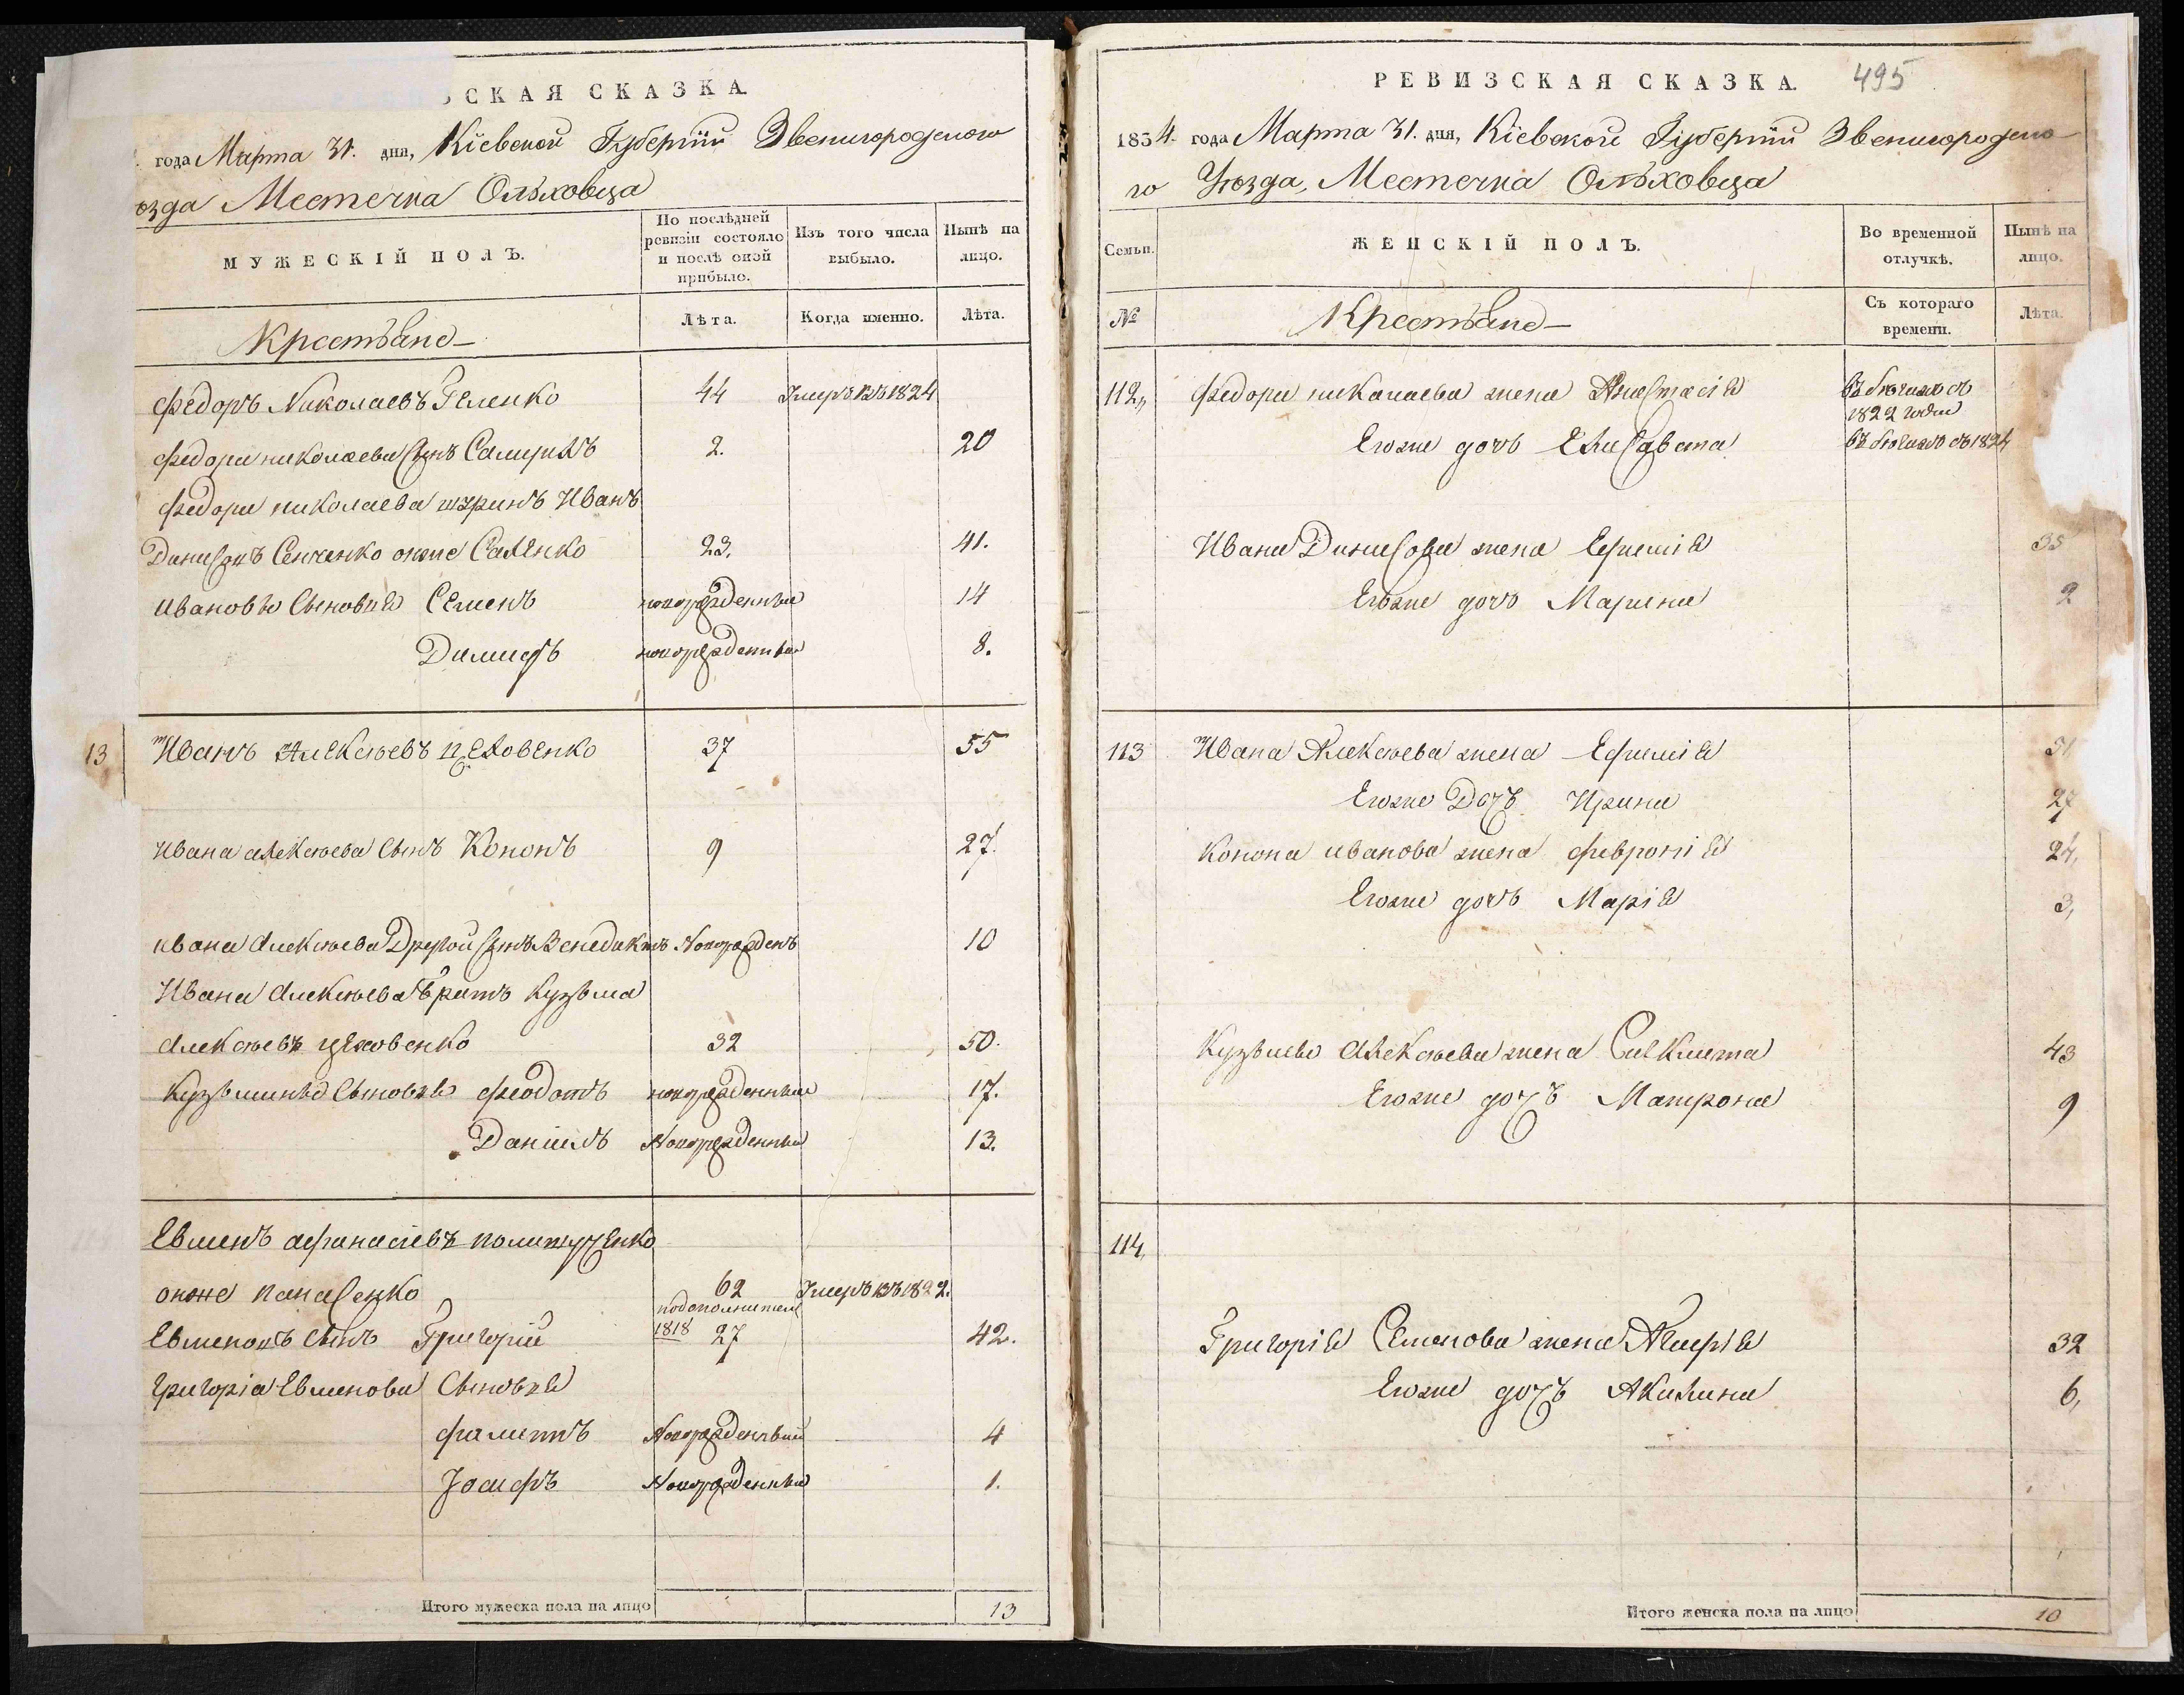 СКАЯ СКАЗКА.
года Марта 31. дня, Кіевской Губерніи Звенигородского
ѣзда Местечка Ольховца
МУЖЕСКІЙ ПОЛЪ.
По послѣдней ревизіи состояло и послѣ оной прибыло.
Изъ того числа выбыло.
Нынѣ на лицо.
Крестьяне
Лѣта.
Когда именно.
Лѣта.
Федоръ Николаевъ Геленко 44 Умеръ въ 1824
Федора николаева Сынъ 2. 20
Федора николаева шуринъ Иванъ
Сенченко онже 23. 41.
Ивановы Сыновья Семенъ новорожденный 14
новорожденный 8.
13 Иванъ Алексѣевъ Цеховенко 37 55
Ивана алексѣева Сынъ Кононъ 9 27.
ивана Алексѣева Другой Сынъ Венедиктъ Новорожденъ 10
Ивана Алексѣева братъ Кузьма
Алексѣевъ цеховенко 32 50.
Кузьмины Сыновья Феодотъ новорожденный 17.
Даніилъ Новорожденный 13.
Евменъ афанасіевъ
онже панасенко 62 Умеръ въ 1822.
подополнител
Евменовъ Сынъ Григорій 1818 27 42.
Григорія Евменова Сыновья
Новорожденный 4
Іосифъ Новорожденный 1.
Итого мужеска пола на лицо 13
РЕВИЗСКАЯ СКАЗКА. 495
1834. года Марта 31. дня, Кіевской Губерніи Звенигородско
го Уѣзда, Местечка Ольховца
Семьи.
ЖЕНСКІЙ ПОЛЪ.
Во временной отлучкѣ.
Нынѣ на лицо.
№
Крестьяне
Съ котораго времени.
Лѣта.
112, Федора николаева жена Анастасія въ бегахъ съ
1822 года
Егоже дочь Елисавета въ бегахъ съ 1824
Ивана Динисова жена Ефимія 35
Егоже дочь Марина 2
113 Ивана Алексѣева жена Ефимія 51
Егоже Дочь Ирина 27
Конона иванова жена февронія 24,
Егоже дочь Марія 3,
Кузьмы алексѣева жена 43
Егоже дочь Матрона 9
114,
Григорія Семенова жена 32
Егоже дочь Акилина 6,
Итого женска пола на лицо 10